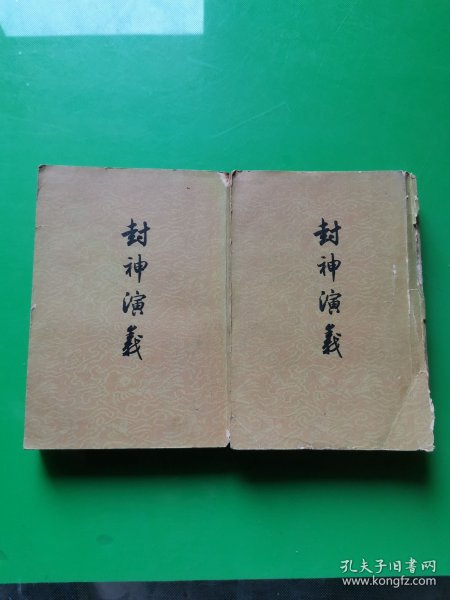 封神演義
封神演義
孔夫子旧书网
www.kongfz.com